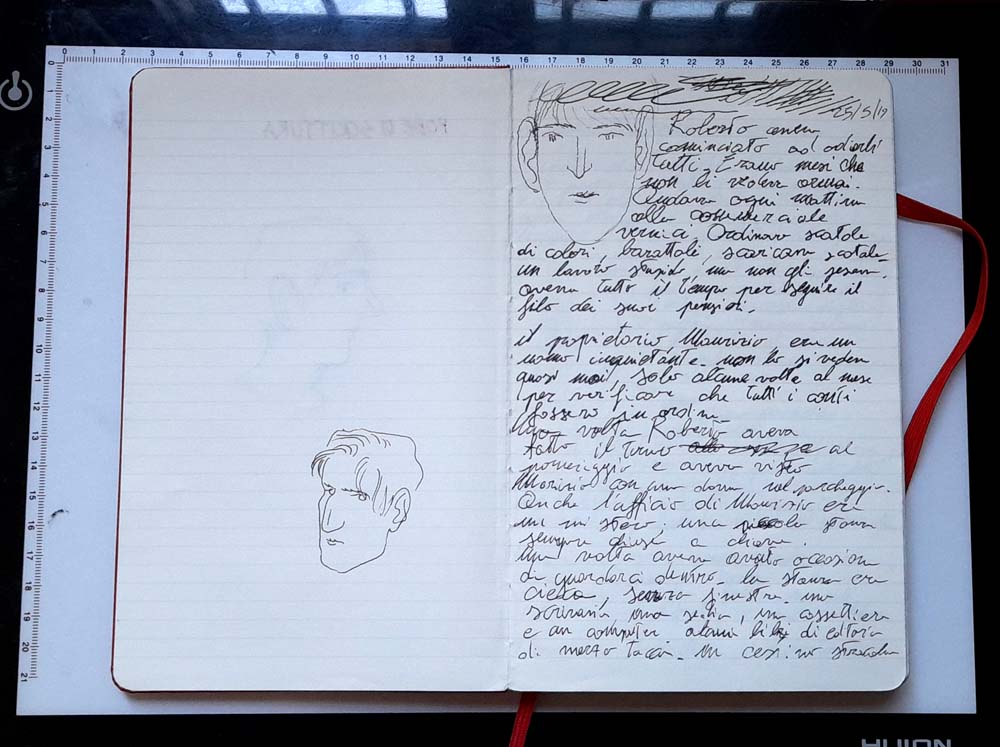 25/5/19
Roberto aveva
cominciato ad odiarli
tutti. Erano mesi che
non li voleva ormai.
Andava ogni mattina
alla commerciale
vernici. Ordinava scatole
di colori, barattoli, scaricava scatole.
un lavoro stupido, ma non gli pesava.
aveva tutto il tempo per seguire il
filo dei suoi pensieri.
il proprietario Maurizio, era un
uomo inquietante. non lo si vedeva
quasi mai, solo alcune volte al mese
per verificare che tutti i conti
fossero in ordine
Una volta Roberto aveva
fatto il turno al
pomeriggio e aveva visto
Maurizio con una donna nel parcheggio.
Anche l'ufficio di Maurizio era
un mistero. una piccola stanza
sempre chiusa a chiave.
Una volta aveva avuto occasione
di guardarci dentro. la stanza era
cieca, senza finestre. una
scrivania, una sedia, una cassettiera
e un computer alcuni libri di editoria
di mezza tacca. Un cestino
HUION